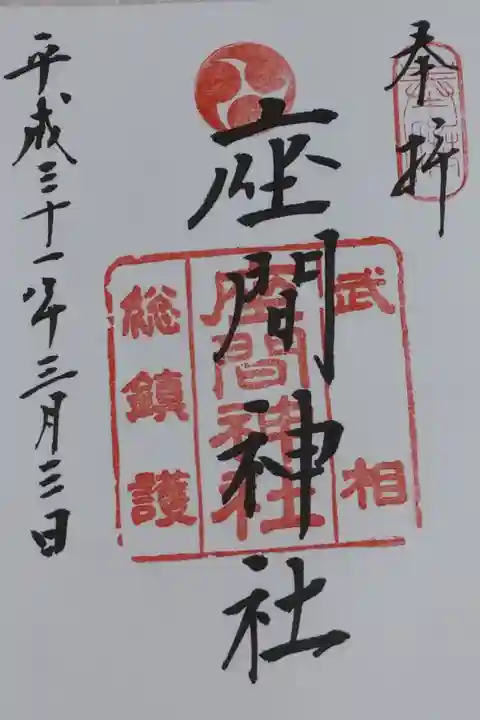 奉拝
武相
座間神社
座間神社
総鎮護
平成三十一年三月三日